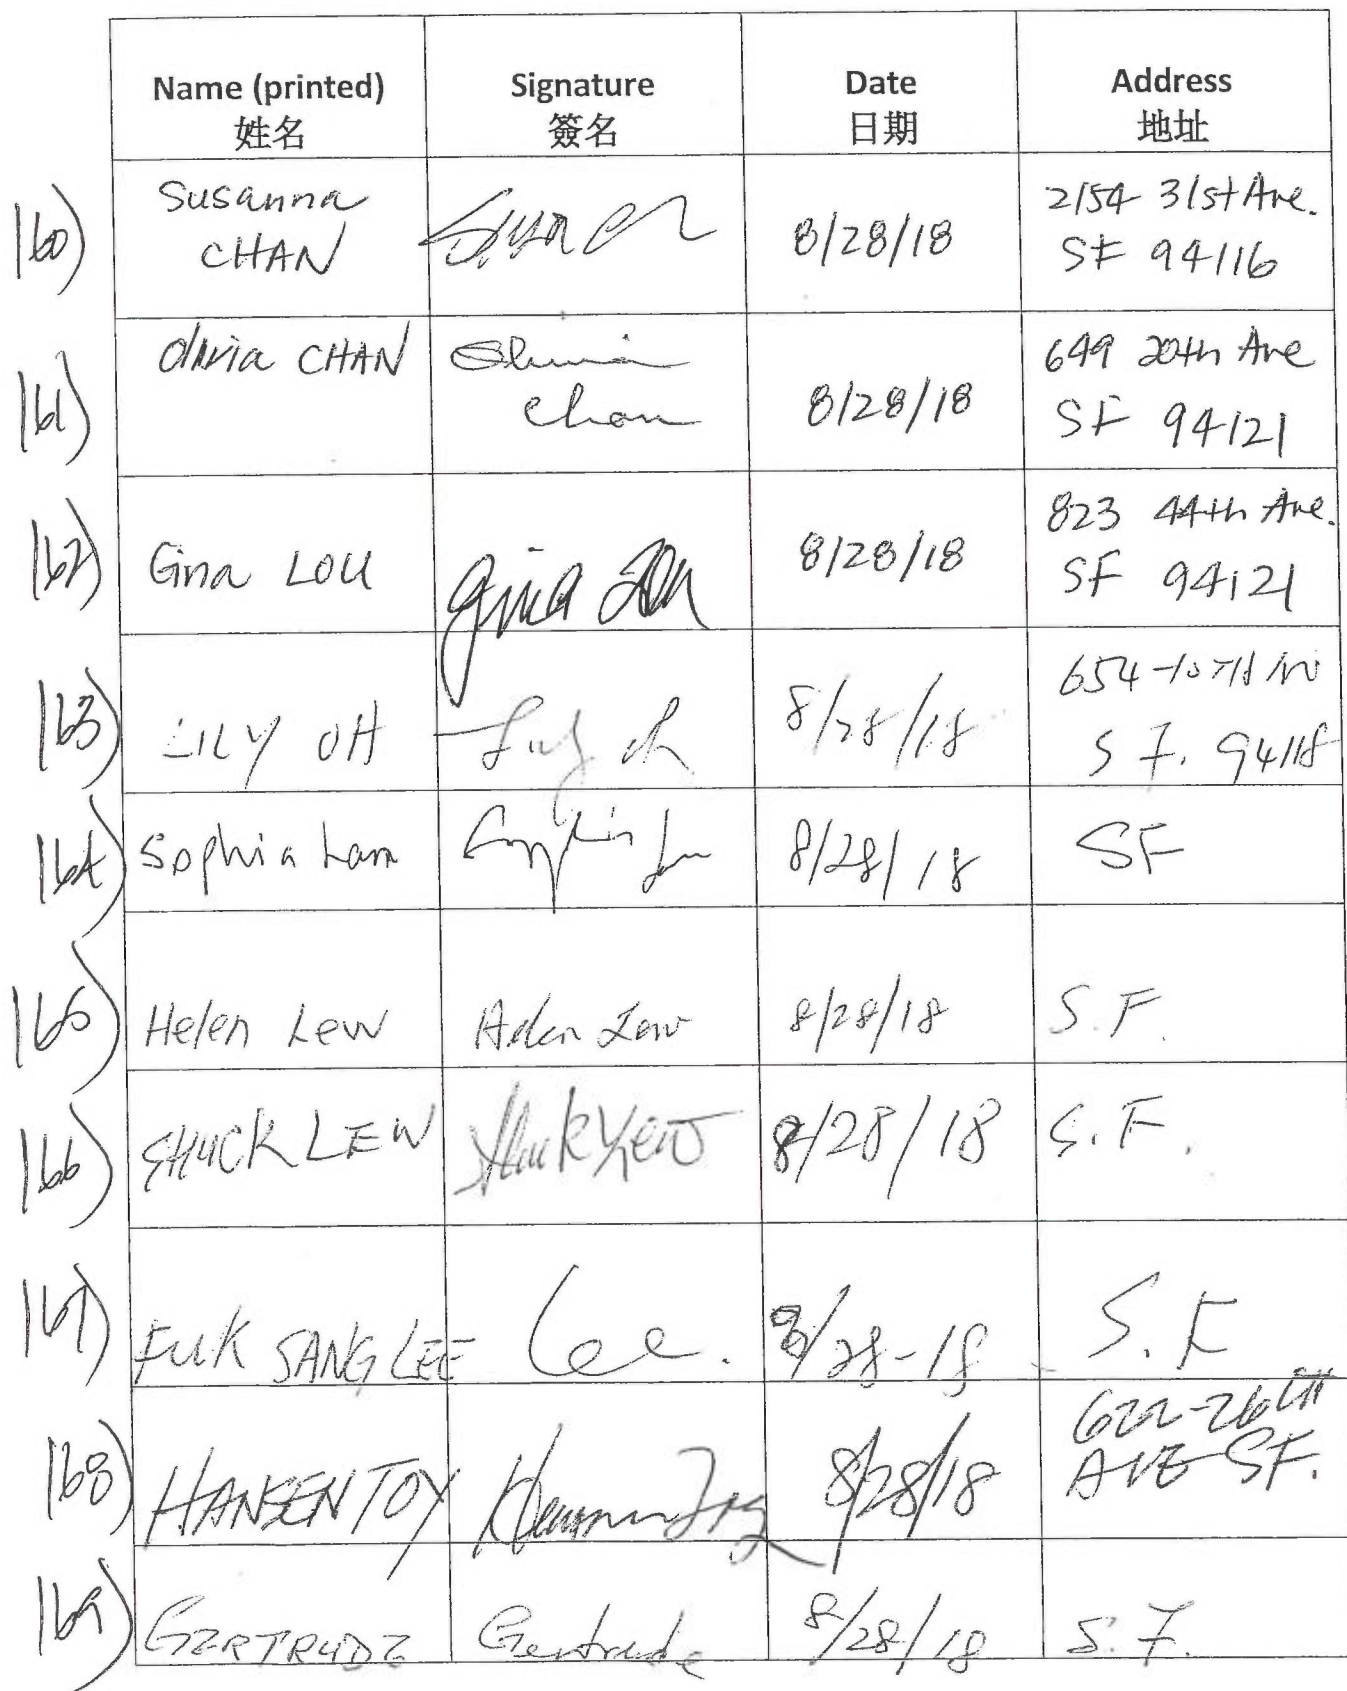 Name (printed) Signature Date Address
姓名 簽名 日期 地址
160) Susanna 2154 31st Ave.
CHAN 8/28/18 SF 94116
161) Olivia CHAN Olivia 649 20th Ave
Chan 8/28/18 SF 94121
162) Gina LOU Gina Lou 8/28/18 823 44th Ave.
SF 94121
163) LILY OH Lily Oh 8/28/18 654-10TH AV
S F. 94118
164) Sophia Lam Sophia Lam 8/28/18 SF
165) Helen Lew Helen Lew 8/28/18 S.F.
166) SHUCK LEW Shuck Lew 8/28/18 S.F.
167) FUK SANG LEE Lee. 8/28-18 S.F
168) HANSEN TOY Hansen Toy 8/28/18 622-26TH
AVE SF.
169) GERTRUDE Gertrude 8/28/18 S.F.